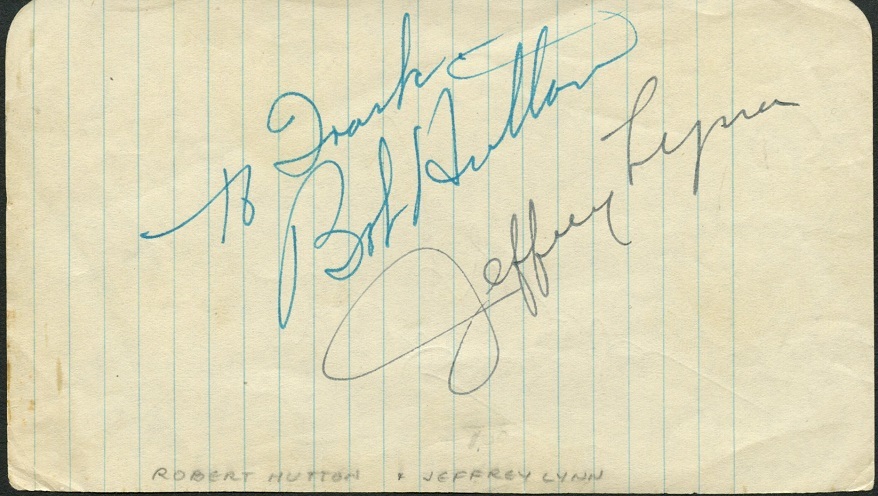 To Frank -
Bob Hutton
Jeffrey Lynn
ROBERT HUTTON + JEFFREY LYNN